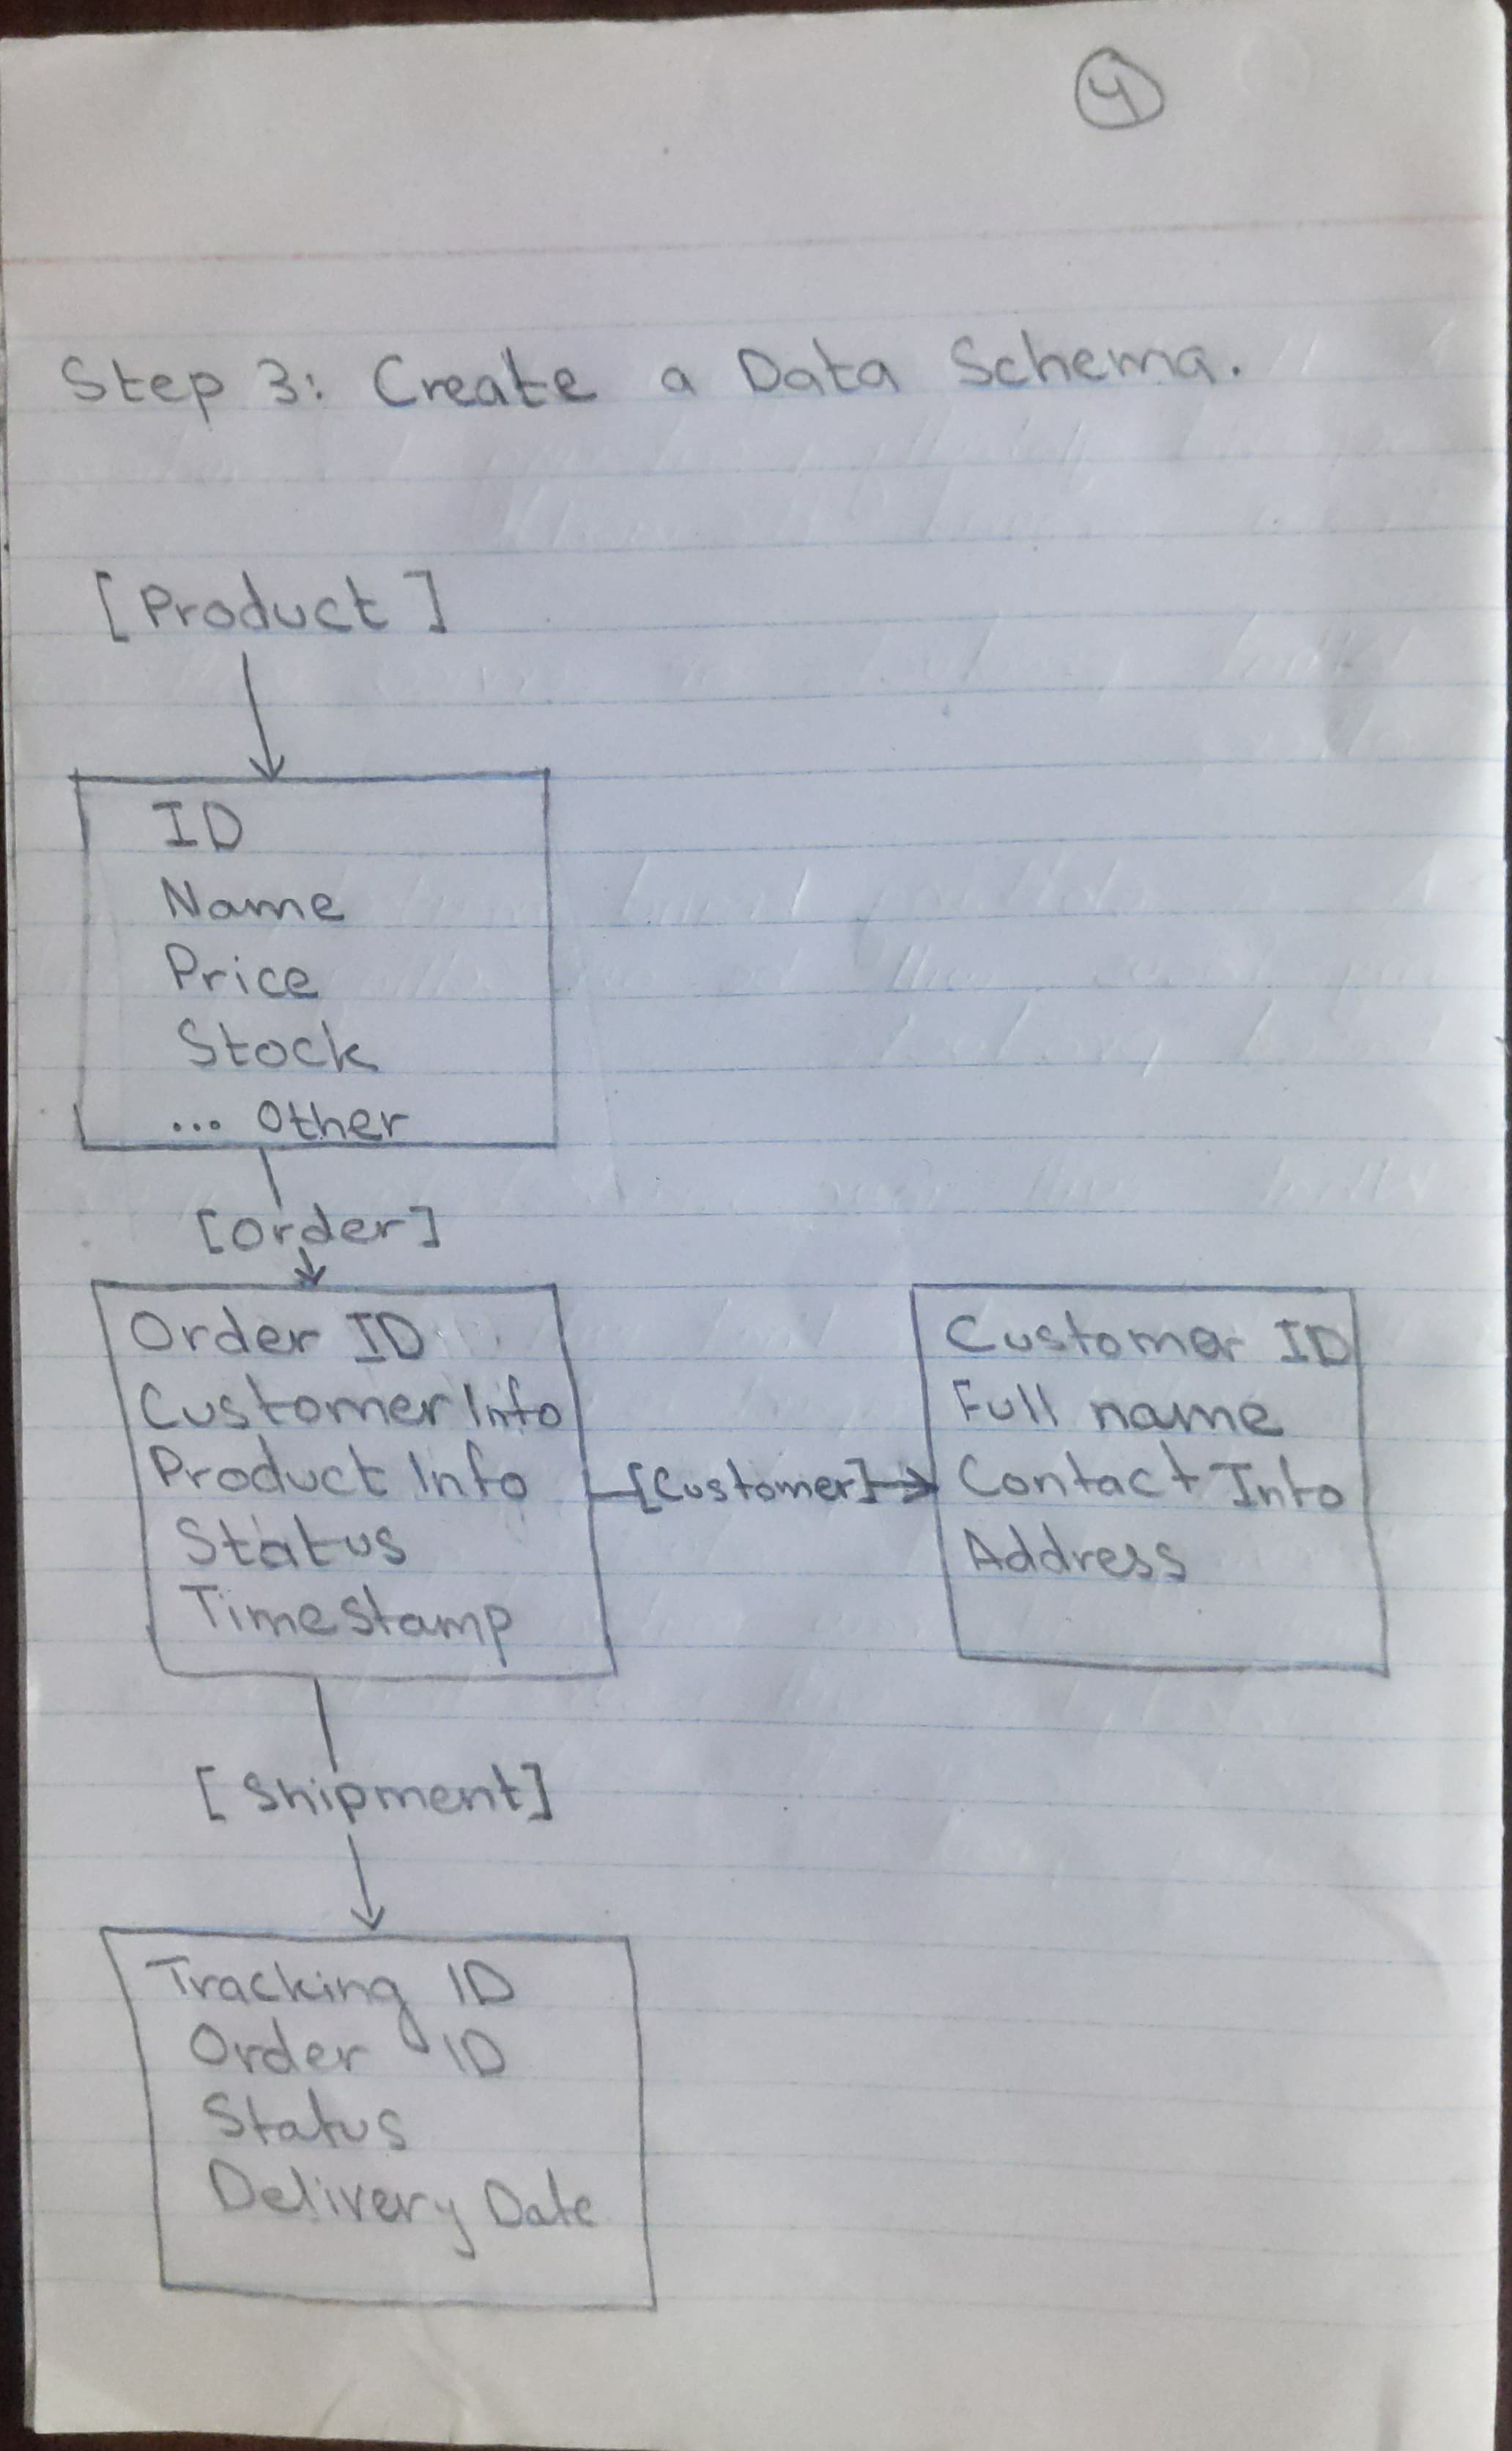 4
Step 3: Create a Data Schema.
[Product]
ID
Name
Price
Stock
... Other
[Order]
Order ID
Customer Info
Product Info
Status
Timestamp
[Customer]
Customer ID
Full name
Contact Info
Address
[Shipment]
Tracking ID
Order ID
Status
Delivery Date